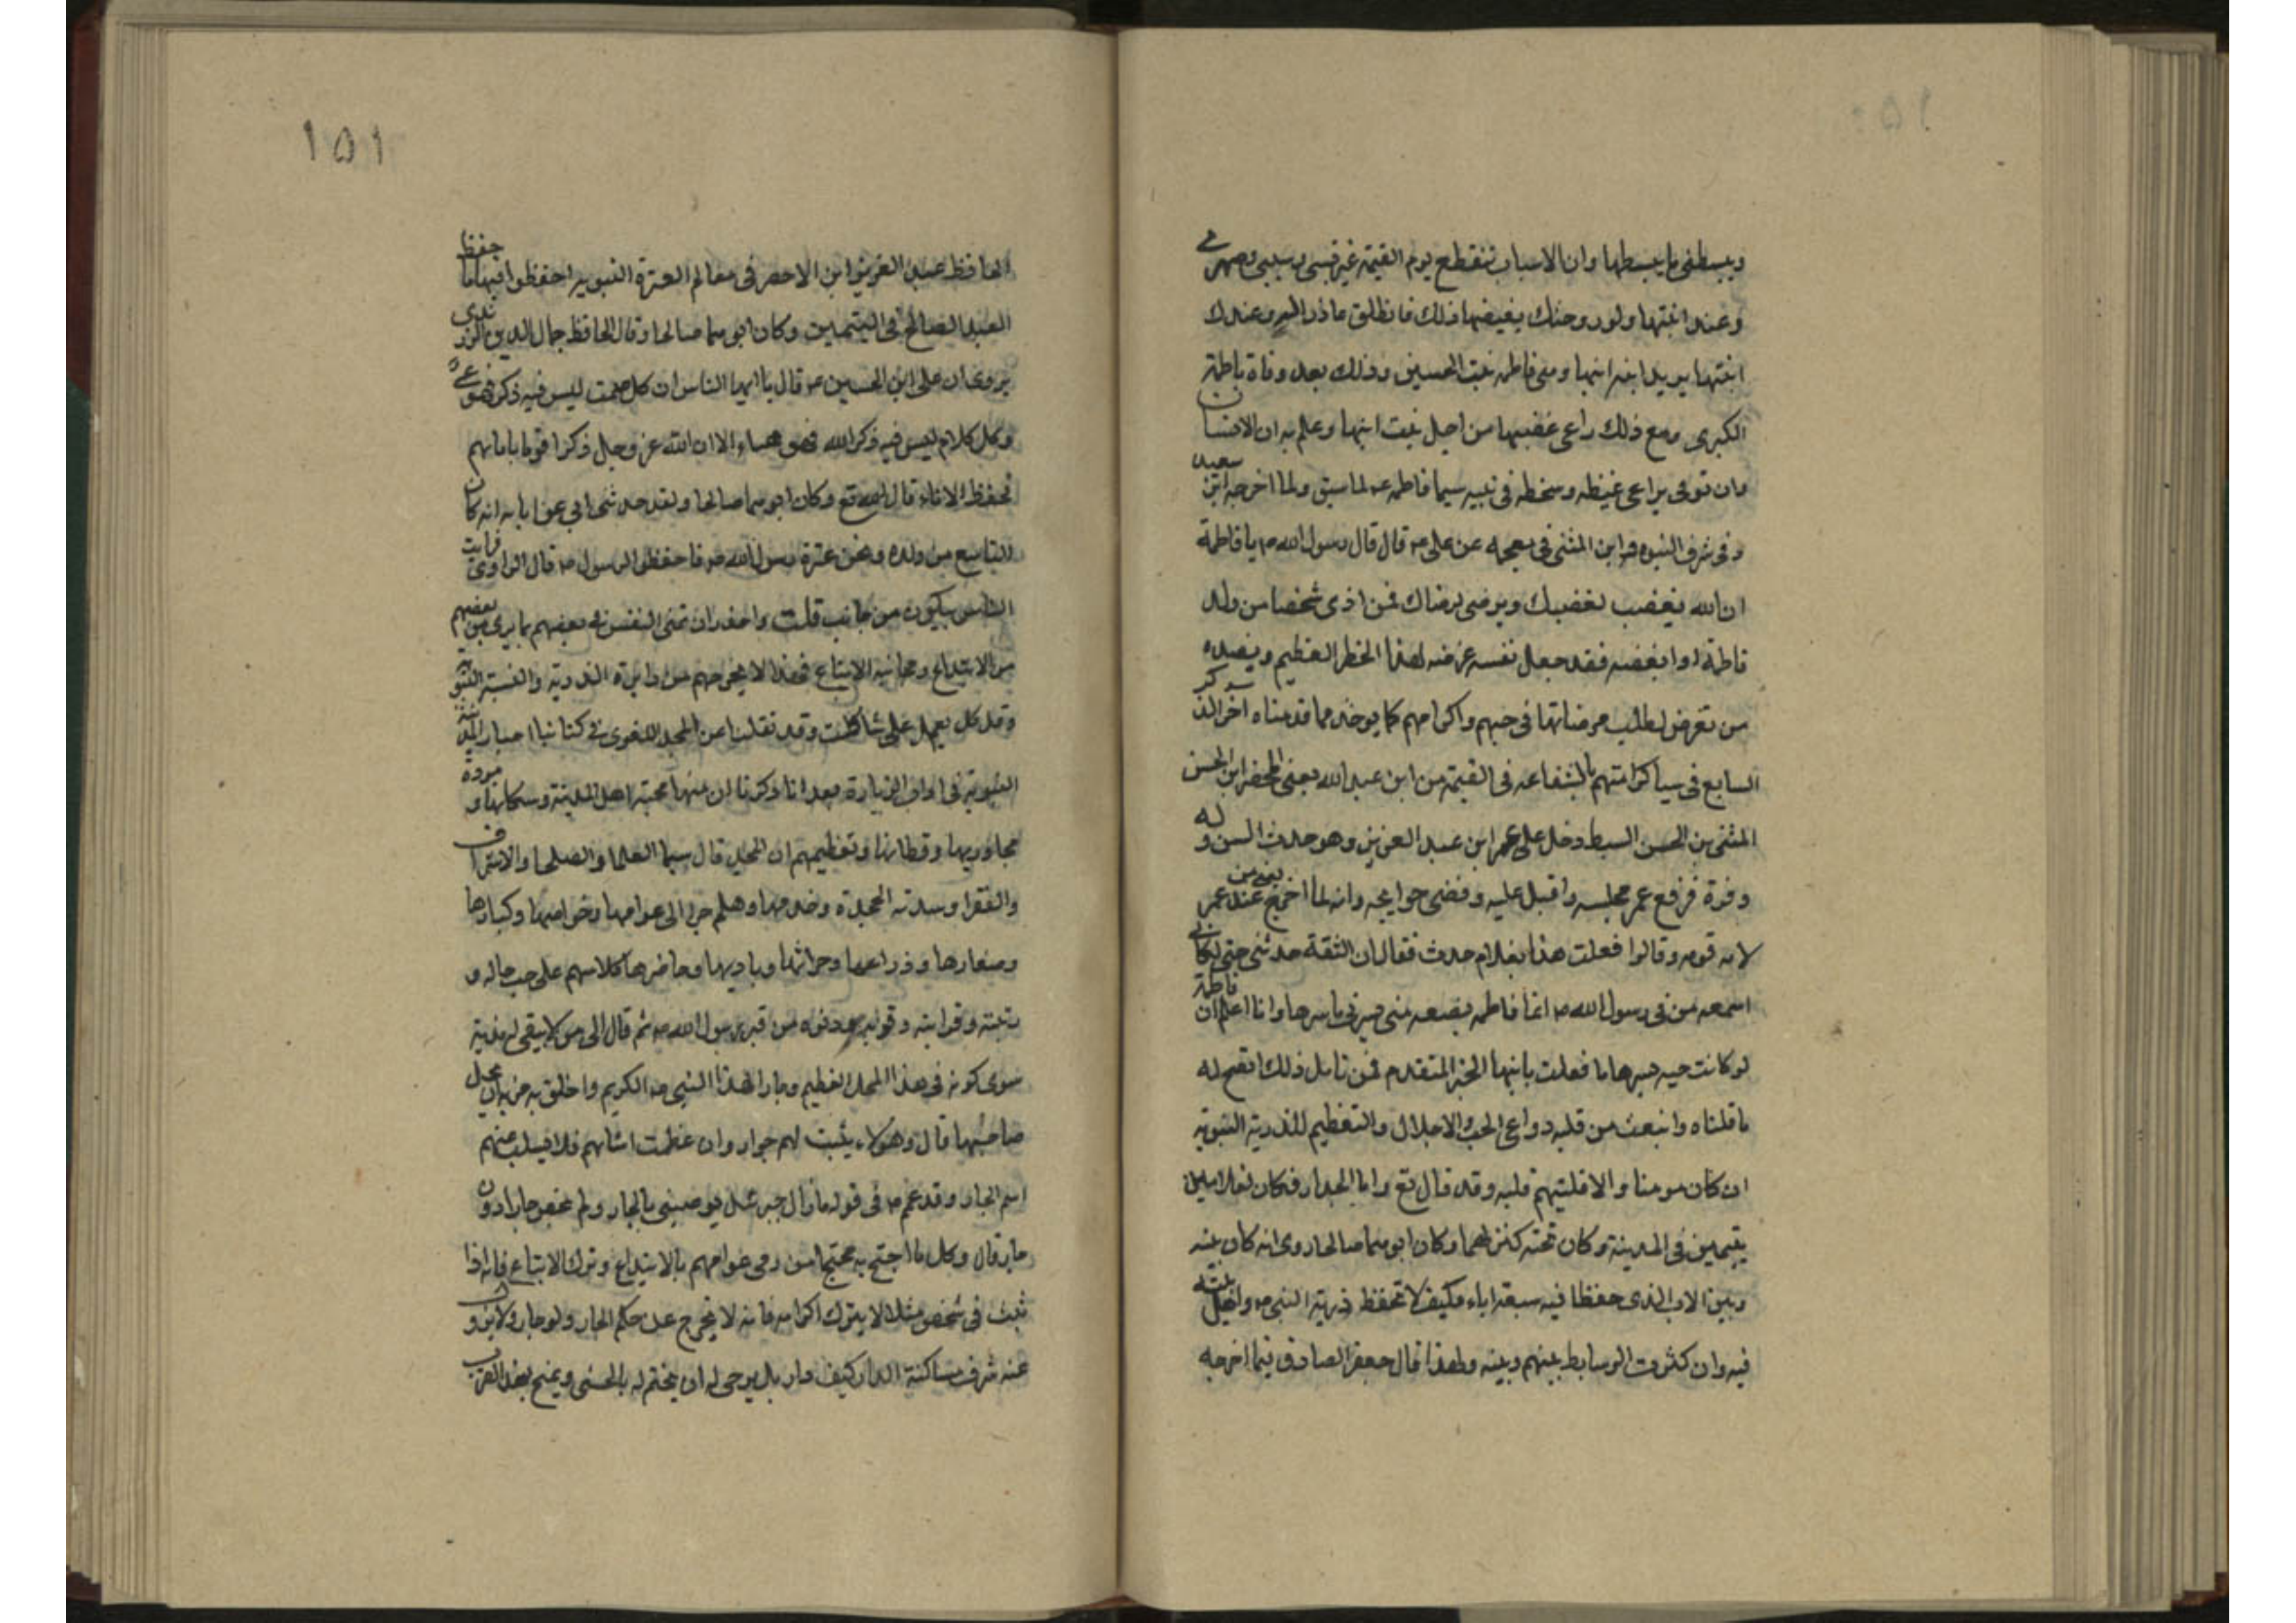 ويبسطنى ما يبسطها وان الاسباب تنقطع يوم القيمة غير نسبى وسببى وصهرى
وعندك ابنتها ولو زوجتك يغيضها ذلك فانطلق عاذرا له وعندك
ابنتها يريد ابنة ابنها وهى فاطمه بنت الحسين وذلك بعد وفاة فاطمة
الكبرى ومع ذلك راعى غضبها من اجل بنت ابنها وعلم به ان الانسان
وان توفى يراعى غيظه وسخطه فى بنيه سيما فاطمه عـ لما سبق ولما اخرجه ابن سعيد
فى شرف النبوه وابن المثنى فى معجمه عن على عـ قال قال رسول الله صـ يا فاطمة
ان الله يغضب لغضبك ويرضى لرضاك فمن اذى شخصا من ولد
فاطمة او ابغضه فقد جعل نفسه عرضه لهذا الخطر العظيم وبضده
من تعرض لطلب مرضاتها فى حبهم واكرامهم كما يوخذ مما قدمناه اخر الذكر
السابع فى سيا كرامتهم بالشفاعه فى القيمة من ابن عبد الله يعنى المحض ابن الحسن
المثنى بن الحسن السبط دخل على عمر ابن عبد العزيز وهو حدث السن وله
وفرة فرفع عمر مجلسه واقبل عليه وقضى حوايجه وانه لما اخرج من عند عمر
لامه قومه وقالوا فعلت هذا بغلام حدث فقال ان الثقة حدثنى حتى لكانى
اسمعه من فى رسول الله صـ انما فاطمه بضعه منى يسرنى ما يسرها وانا اعلم ان فاطمة
لو كانت حيه لسرها ما فعلت بابنها الخبر المتقدم فمن تامل ذلك اتضح له
ما قلناه وانبعث من قلبه دواعى الحب والاجلال والتعظيم للذرية النبوية
ان كان مومنا والا فليتهم قلبه وقد قال تع واما الجدار فكان لغلامين
يتيمين فى المدينة وكان تحته كنز لهما وكان ابوهما صالحا روى انه كان بينه
وبين الاب الذى حفظا فيه سبعة اباء فكيف لا تحفظ ذرية النبى صـ واهل بيته
فيه وان كثرت الوسايط بينهم وبينه ولهذا قال جعفر الصادق فيما اخرجه
١٥١
الحافظ عبد العزيز ابن الاخضر فى معالم العترة النبوية احفظوا فينا ما حفظ
العبد الصالح فى اليتيمين وكان ابوهما صالحا وقال الحافظ جمال الدين الزرندى
يروى ان على ابن الحسين عـ قال يا ايها الناس ان كل صمت ليس فيه ذكر فهو عى
وكل كلام ليس فيه ذكر الله فهو هباء الا ان الله عز وجل ذكر اقواما بابائهم
فحفظ الابناء قال الله تع وكان ابوهما صالحا ولقد حدثنى ابى عن ابائه انه كان
التاسع من ولده ونحن عترة رسول الله صـ فاحفظوا لرسول صـ قال الراوى فرايت
الناس يبكون من جانب قلت واحذر ان تمنى النفس فى بعضهم بما يرى من بعضهم
من الابتداع ومجانبة الاتباع فهذا لا يخرجهم من دايرة الذرية والنسبة النبوية
وقد كل يعمل على شاكلته وقد نقلت عن المجد اللغوى فى كتابنا اخبار المدينة
النبوية فى اداب الزيارة بعد انا ذكرنا ان منها محبة اهل المدينة وسكانها ومودة
مجاوريها وقطانها وتعظيمهم ان المجد قال سيما العلما والصلحا والاشراف
والفقرا وسدنه الحجرة وخدمها وهلم جرا الى عوامها وخواصها وكبارها
وصغارها وزراعها وحراثها وباديها وحاضرها كلا منهم على حسب حاله و
رتبته وقرابته وقربه ودنوه من قبر رسول الله صـ ثم قال الى من لا يبقى له مزية
سوى كونه فى هذا المحل العظيم وجار لهذا النبى صـ الكريم واخلق به مزية ان يجل
صاحبها قال وهولاء يثبت لهم جوار وان عظمت اساتهم فلا يسلب عنهم
اسم الجار وقد عمم صـ فى قوله ما زال جبرئيل يوصينى بالجار ولم يخص جارا دون
جار قال وكل ما احتج به محتج من رمى عوامهم بالابتداع وترك الاتباع فانه اذا
ثبت فى شخص مثلا لا يترك اكرامه فانه لا يخرج عن حكم الجار ولو جار ولا يزول
عنه شرف مساكنة الدار كيف دار بل يرجى له ان يختم له بالحسنى ويمنح بهذا القرب